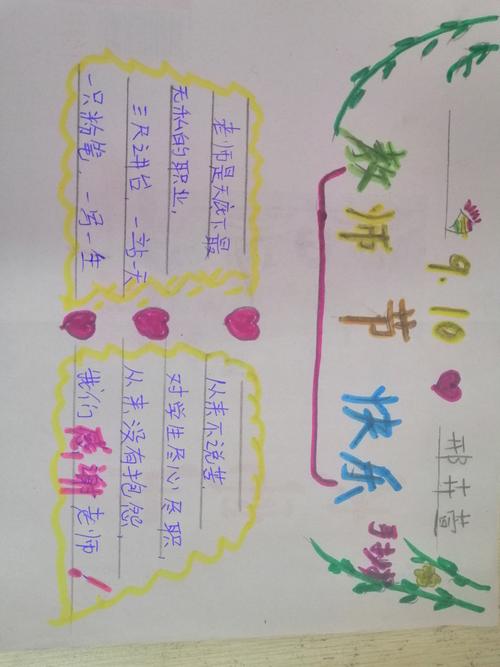 9.10
教师节快乐
老师是天底下最
无私的职业,
三尺讲台,一站一天
一只粉笔,一写一生
从来不说苦,
对学生尽心尽职,
从来没有抱怨,
我们感谢老师!